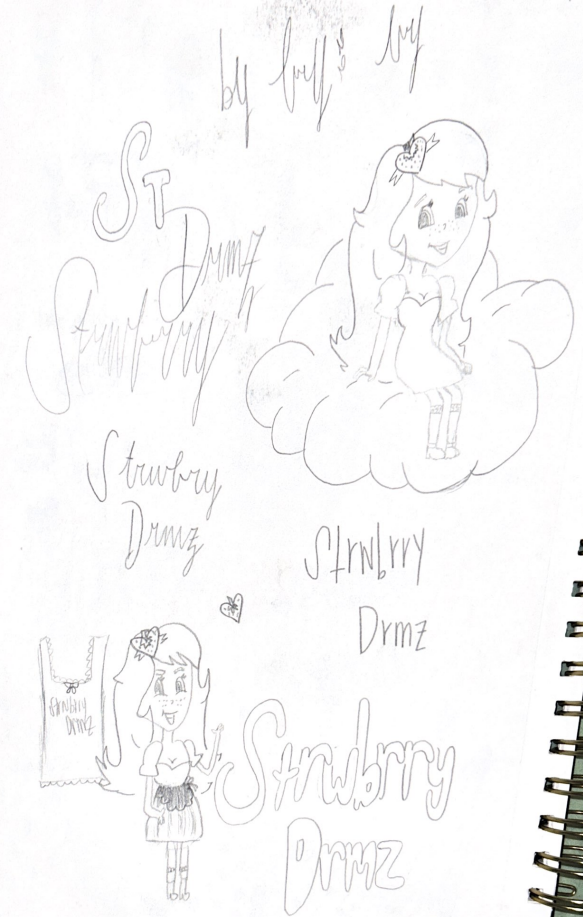 by by by
St
Drmz
Strwbrry
Strwbry
Drmz
Strwbrry
Drmz
Strwbrry
Drmz
Strwbrry
Drmz